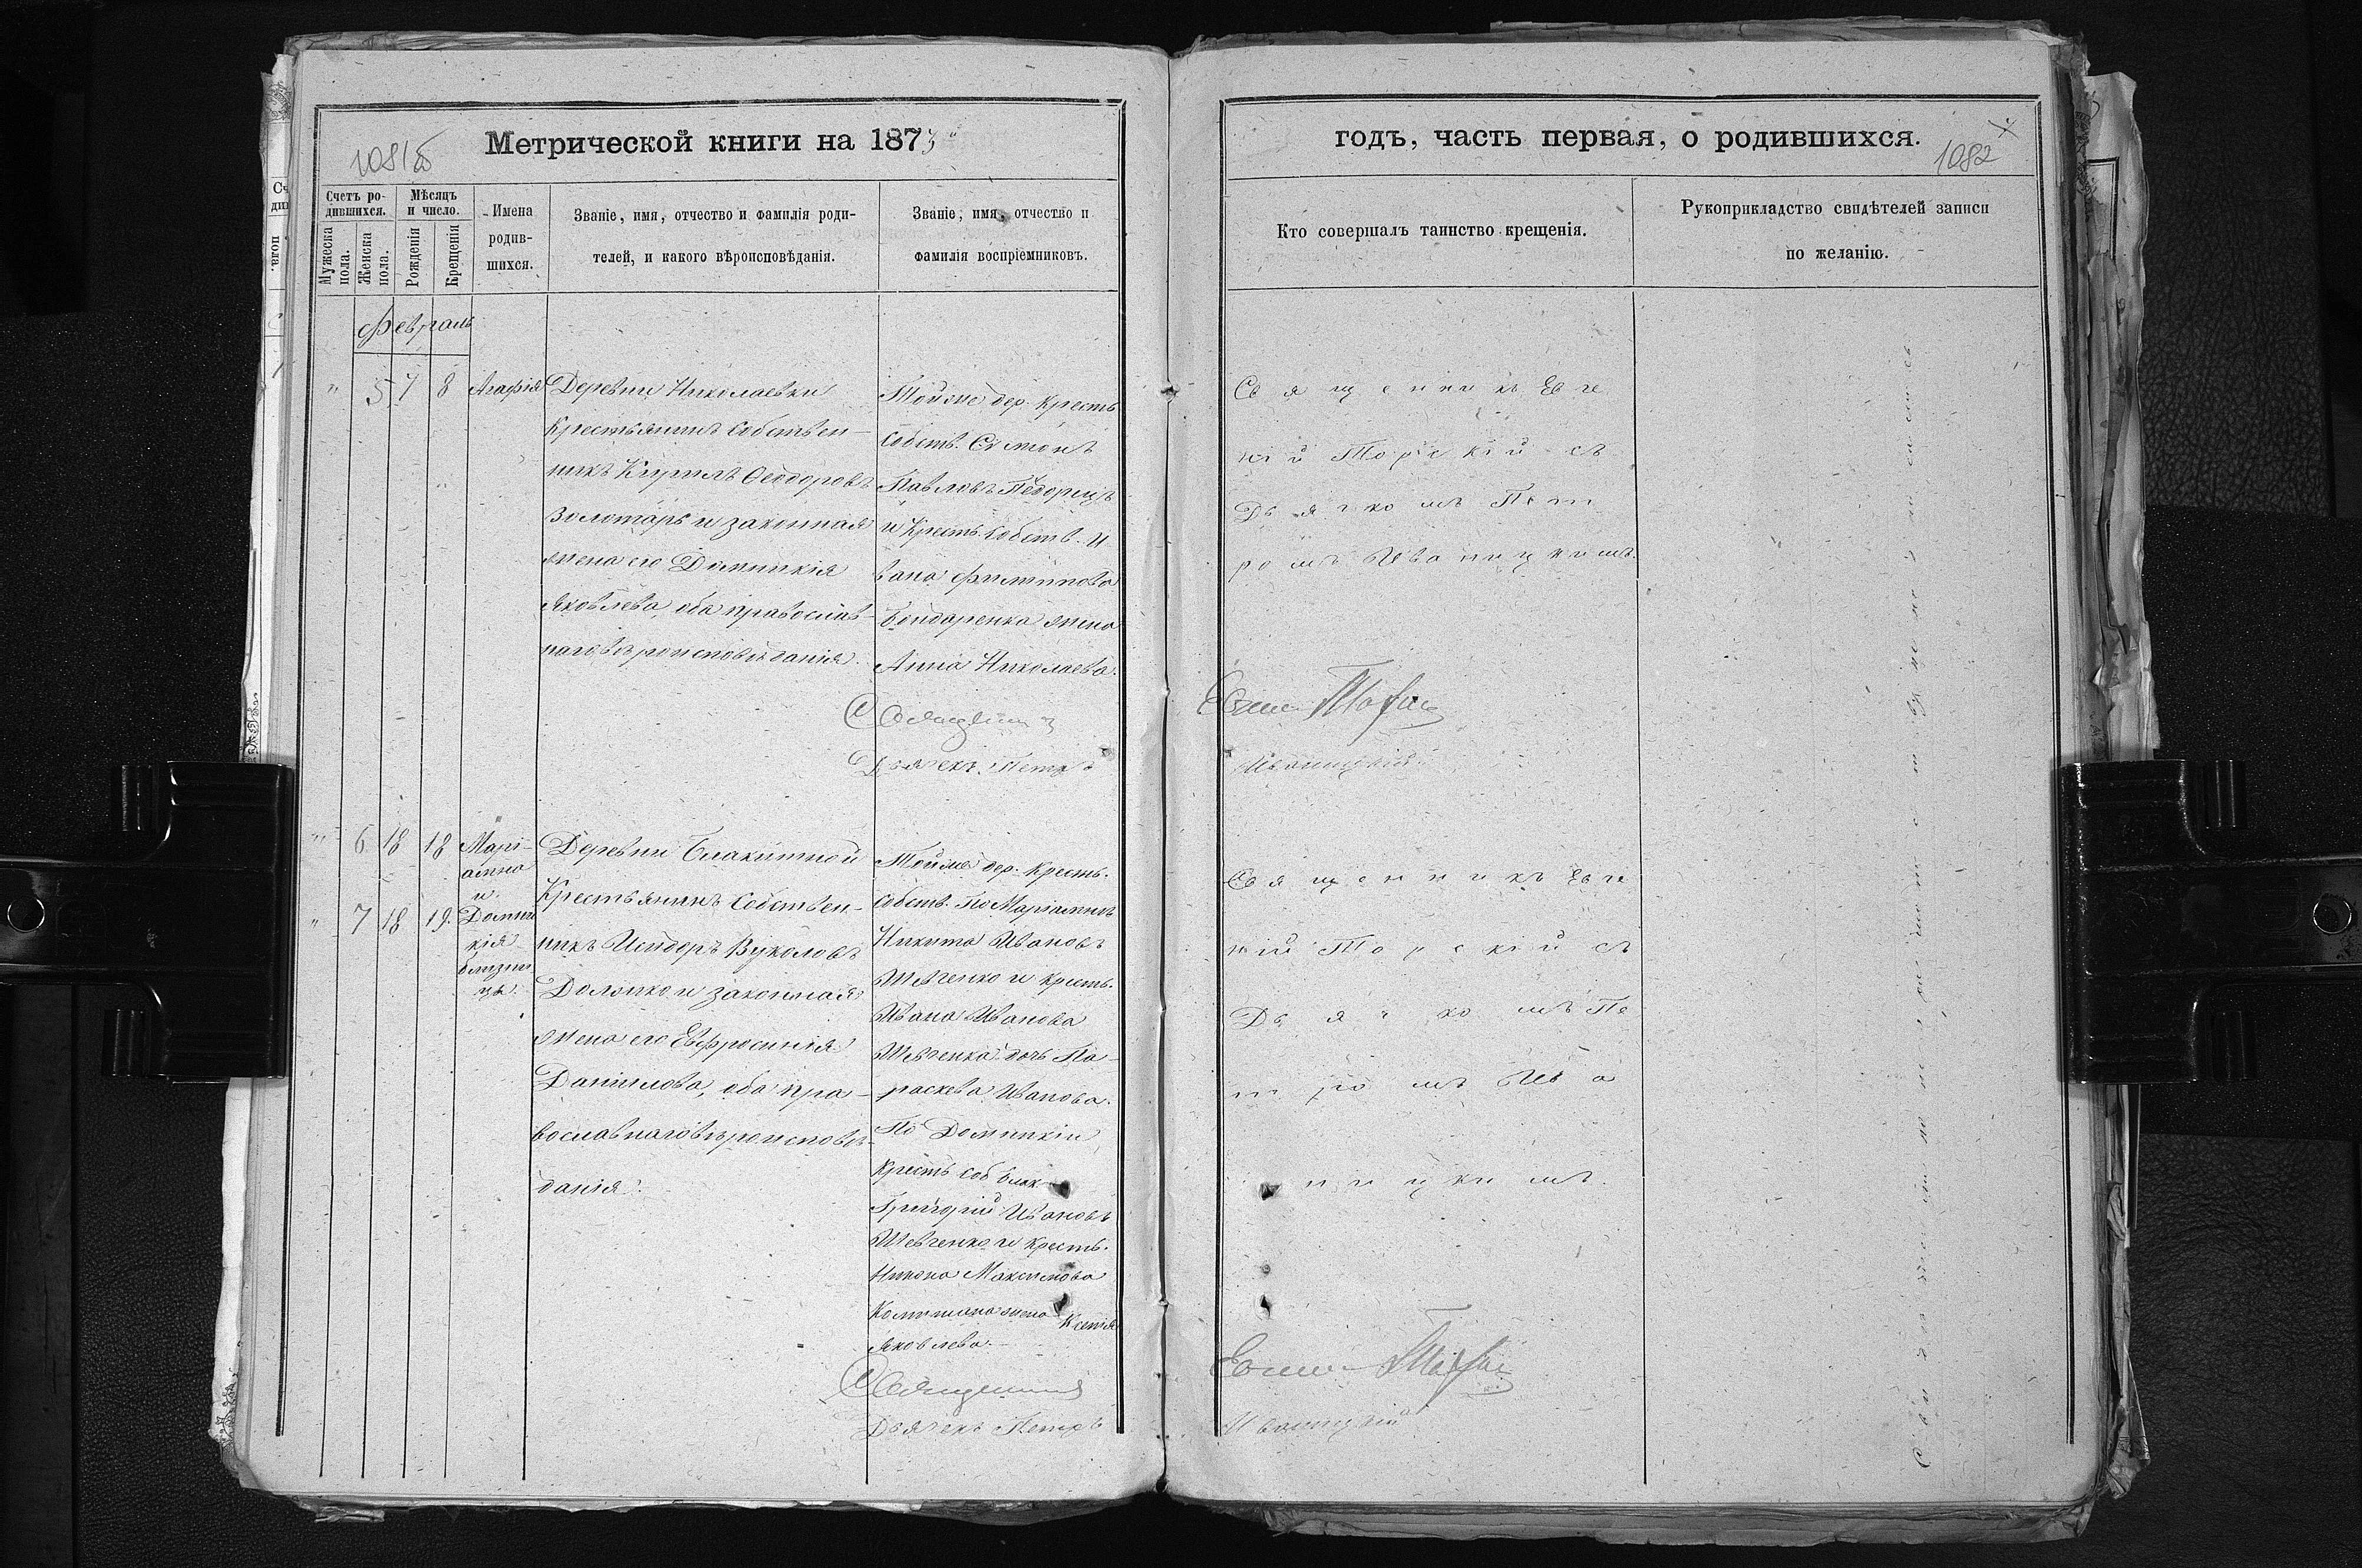 Метрической книги на 1873
1081 об
Счетъ родившихся.
Мужеска пола.
Женска пола.
Мѣсяцъ и число.
Рожденія
Крещенія
Имена родив-
шихся.
Званіе, имя, отчество и фамилія роди-
телей, и какого вѣроисповѣданія.
Званіе, имя, отчество и
фамилія воспріемниковъ.
Февраль
" 5 7 8 Агафія
Деревни Николаевки
Крестьянинъ Собствен-
никъ Кирилъ Ѳеодоровъ
Золотарь и законная
жена его Домникія
Яковлева, оба православ-
наго вѣроисповѣданія.
Тойже дер. Кресть
Собств. Симонъ
Павловъ
и Кресть. Собств. И-
вана Филиппова
Бондаренка жена
Анна Николаева.
Священникъ
Дьячекъ Петръ
" 6 18 18 Марі-
амна
и
" 7 18 19. Домни
кія
близни
цы.
Деревни Блакитной
Крестьянинъ Собствен-
никъ Исидоръ Вуколовъ
и законная
жена его Евфросинія
Даниилова, оба пра-
вославнаго вѣроисповѣ-
данія.
Тойже дер. Кресть.
Собств. По Маріамнѣ
Никита Ивановъ
Шевченко и кресть.
Ивана Иванова
Шевченка дочь Па-
раскева Иванова.
По Домникіи
Кресть Соб Блак.
Григорій Ивановъ
Шевченко и Кресть.
Максимова
жена Ксенія
Яковлева.
Священникъ
Дьячекъ Петръ
годъ, часть первая, о родившихся.
1082
Кто совершалъ таинство крещенія.
Рукоприкладство свидѣтелей записи
по желанію.
Священникъ Евге
ній Торскій съ
Дьячкомъ Пет
ромъ Иваницкимъ.
Евгеній Торскій
Иваницкій
Священникъ Евге
ній Торскій съ
Дьячкомъ Пе
тромъ Ива
ницкимъ.
Евгеній Торскій
Иваницкій